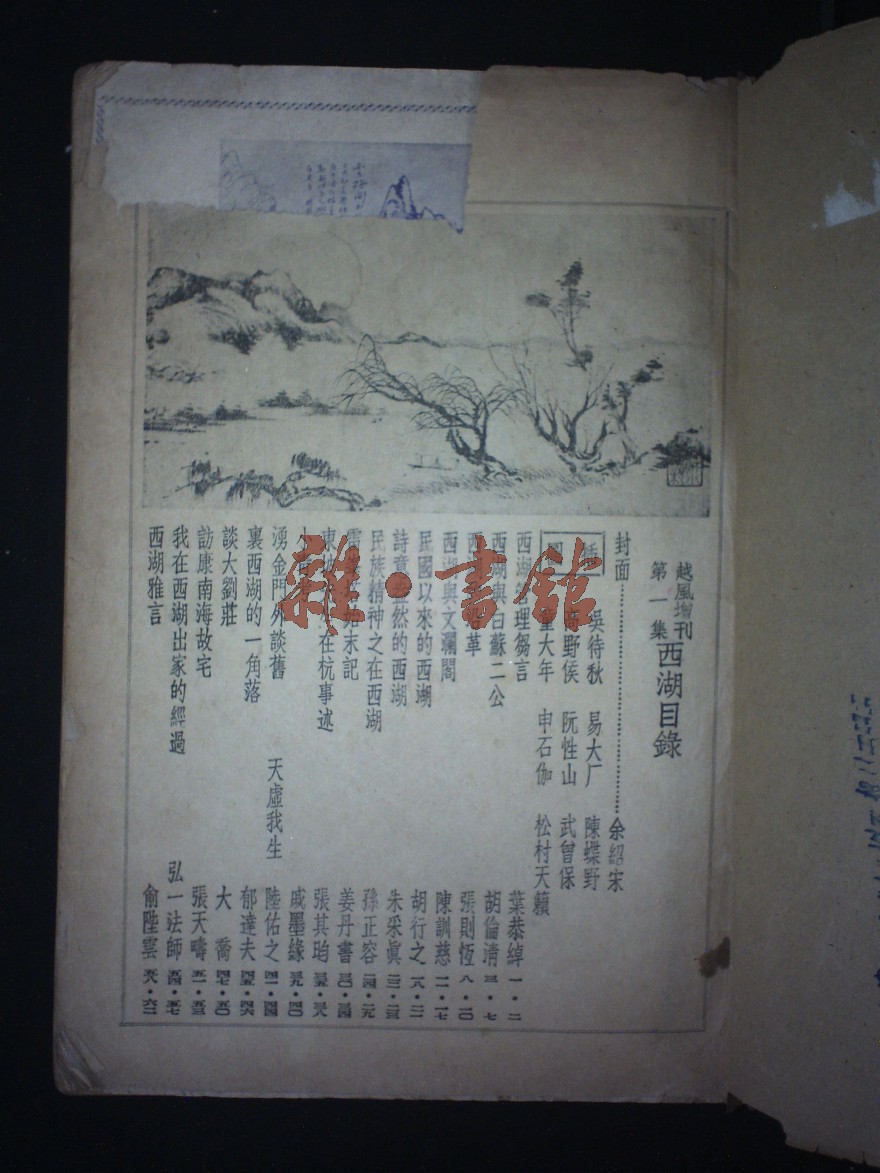 越風增刊
第一集 西湖目錄
封面…………余紹宋
插 吳待秋 易大厂 陳蝶野
野侯 阮性山 武曾保
大年 申石伽 松村天籟
西湖 理芻言 葉恭綽 一·二
西湖與白蘇二公 胡倫清 三·七
西 革 張則恆 八·一〇
西湖與文瀾閣 陳訓慈 一一·一七
民國以來的西湖 胡行之 一八·二一
詩意盎然的西湖 朱采眞 二二·二三
民族精神之在西湖 孫正容 二四·二九
雷 始末記 姜丹書 三〇·三四
東坡 在杭事述 張其昀 三五·三八
小 戚墨緣 三九·四〇
湧金門外談舊 天虛我生 陸佑之 四一·四四
裏西湖的一角落 郁達夫 四五·四六
談大劉莊 大喬 四七·五〇
訪康南海故宅 張天疇 五一·五三
我在西湖出家的經過 弘一法師 五四·五七
西湖雅言 俞陛雲 五八·六二
雜·書館